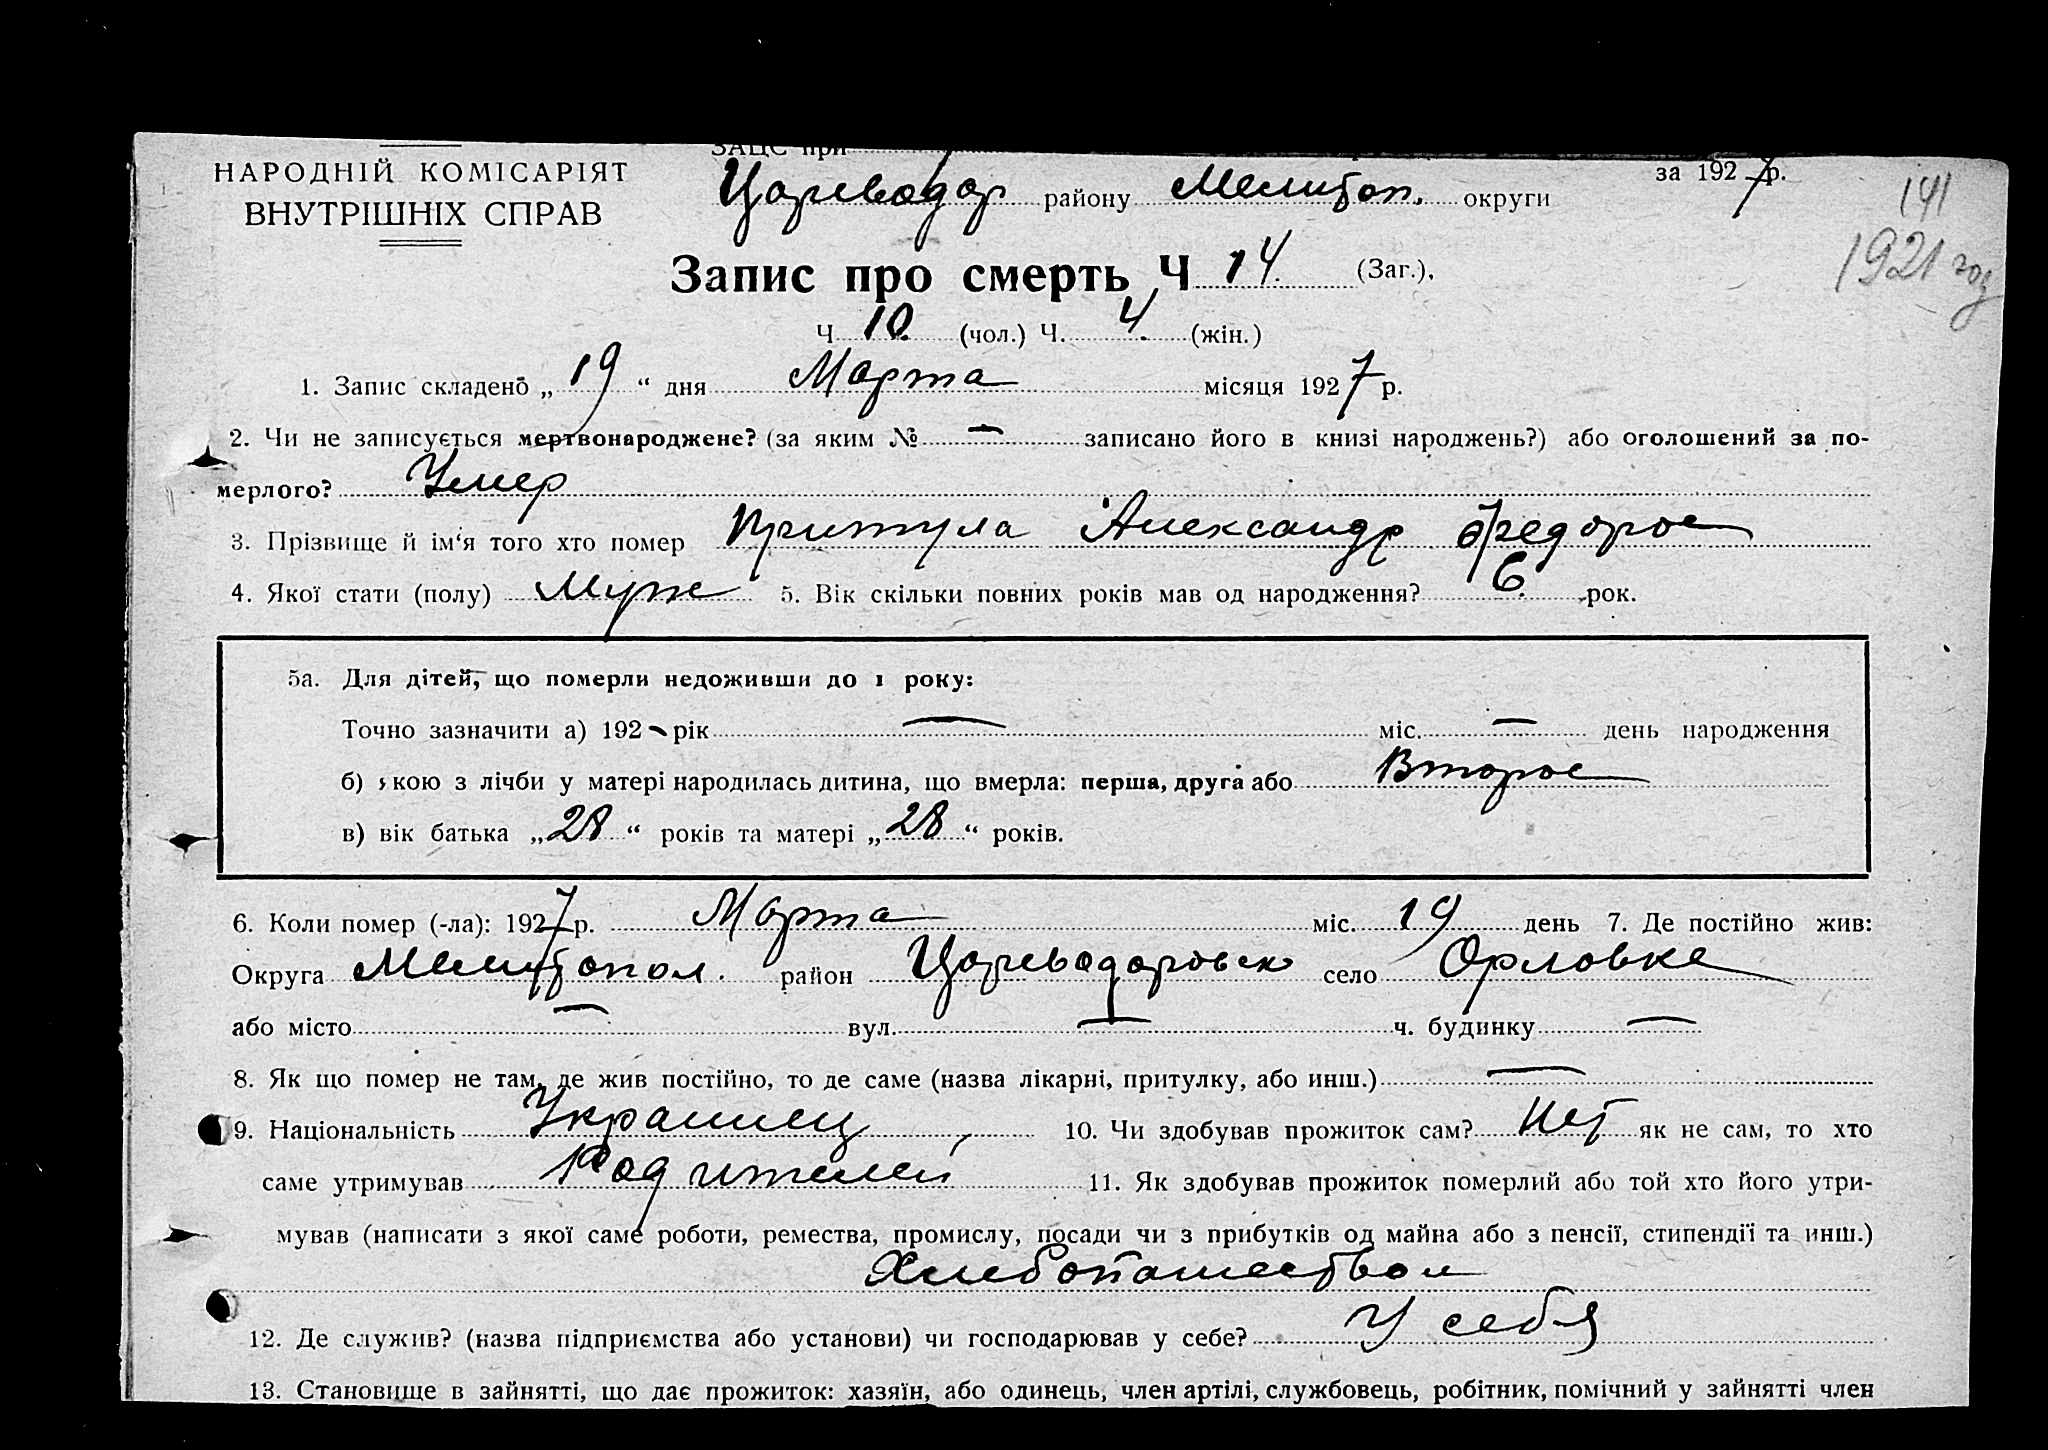 НАРОДНІЙ КОМІСАРІЯТ
ВНУТРІШНІХ СПРАВ
ЗАЦС при
за 1927 р.
Цареводар району Мелитоп. округи
141
1921 год
Запис про смерть Ч 14. (Заг.),
Ч 10. (чол.) Ч. 4. (жін.)
1. Запис складено „ 19 “ дня Марта місяця 1927 р.
2. Чи не записується мертвонароджене? (за яким № — записано його в книзі народжень?) або оголошений за по-
мерлого? Умер
3. Прізвище й ім‘я того хто помер Притула Александр Федоров
4. Якої стати (полу) Муж 5. Вік скільки повних років мав од народження? 6. рок.
5а. Для дітей, що померли недоживши до 1 року:
Точно зазначити а) 192 рік — міс. — день народження
б) кою з лічби у матері народилась дитина, що вмерла: перша, друга або Второе
в) вік батька „ 28 “ років та матері „ 28 “ років.
6. Коли помер (-ла): 1927 р. Марта міс. 19 день 7. Де постійно жив:
Округа Мелитопол. район Цареводаровск село Орловка
або місто — вул. — ч. будинку —
8. Як що помер не там, де жив постійно, то де саме (назва лікарні, притулку, або инш.) —
9. Національність Украинец 10. Чи здобував прожиток сам? Нет як не сам, то хто
саме утримував Родителей 11. Як здобував прожиток померлий або той хто його утри-
мував (написати з якої саме роботи, ремества, промислу, посади чи з прибутків од майна або з пенсії, стипендії та инш.)
Хлебопашеством
12. Де служив? (назва підприємства або установи) чи господарював у себе? У себя
13. Становище в зайнятті, що дає прожиток: хазяїн, або одинець, член артілі, службовець, робітник, помічний у зайнятті член